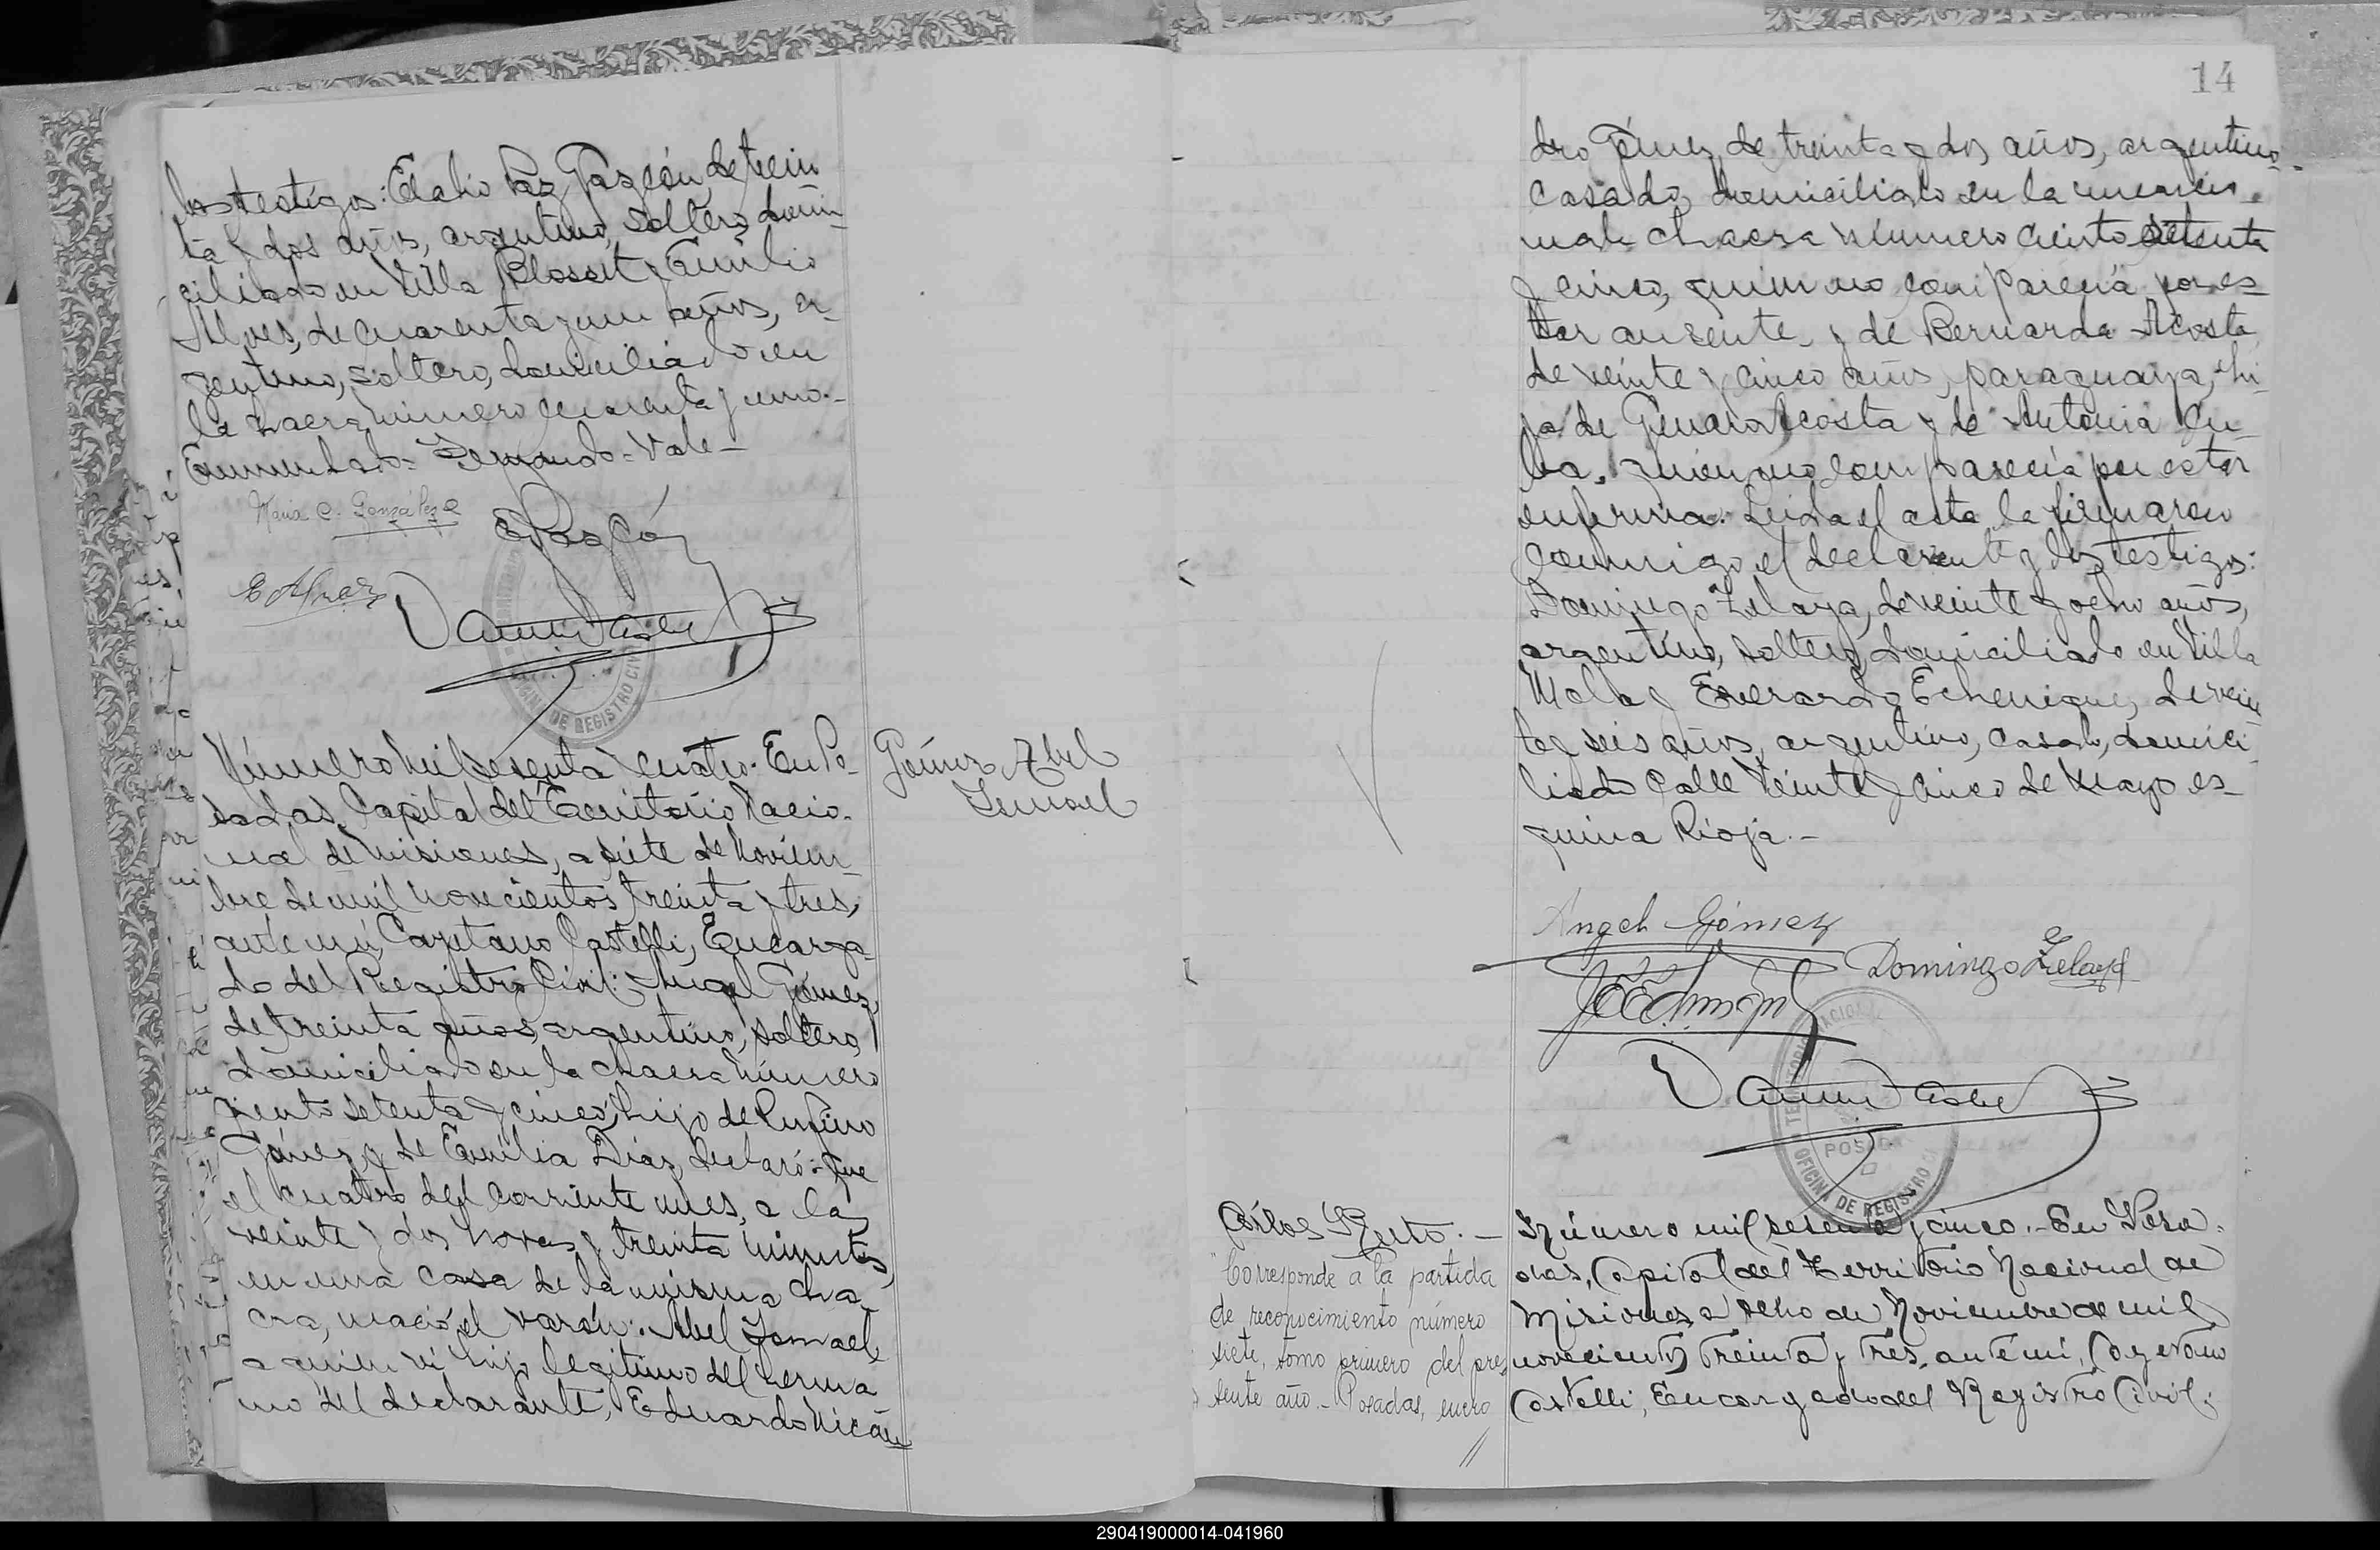 los testigos: Eladio Paz Gascón, de trein
ta y dos años, argentino, soltero, domi-
ciliado en Villa Blosset y Emilio
Alves, de cuarenta y un años, ar-
gentino, soltero, domiciliado en
la chacra número cuarenta y uno.-
Enmendado= Fernando= Vale-
Maria C. González
Número mil sesenta y cuatro. En Po-
sadas, Capital del Territorio Nacio-
nal de Misiones, a siete de Noviem-
bre de mil novecientos treinta y tres,
ante mí, Cayetano Castelli, Encarga-
do del Registro Civil: Angel Gómez,
de treinta años, argentino, soltero,
domiciliado en la chacra número
ciento setenta y cinco, hijo de Rufino
Gómez y de Emilia Díaz, declaró: Que
el cuatro del corriente mes, a las
veinte y dos horas y treinta minutos,
en una casa de la misma cha-
cra, nació el varón: Abel Ismael,
a quien vi hijo legítimo del herma
no del declarante, Eduardo Nicán
Gómez Abel
Ismael
14
dro Gómez, de treinta y dos años, argentino,
casado, domiciliado en la mencio
nada chacra número ciento setenta
y cinco, quien no comparecía por es-
tar ausente y de Bernarda Acosta,
de veinte y cinco años, paraguaya, hi-
ja de Genaro Acosta y de Antonia
quien no comparecía por estar
enferma. Leida el acta, la firmaron
conmigo el declarante y los testigos:
Domingo Zelaya, de veinte y ocho años,
argentino, soltero, domiciliado en Villa
Mola y Everardo Echenique, de vein
te y seis años, argentino, casado, domici
liado calle Veinte y cinco de Mayo es-
quina Rioja.-
Angel Gómez
Domingo Zelaya
POSADAS
OFICINA DE REGISTRO CIVIL
Carlos
"Corresponde a la partida
de reconocimiento número
siete, tomo primero del pre-
sente año.- Posadas, enero
//
Número mil sesenta y cinco.- En Posa-
das, Capital del Territorio Nacional de
Misiones, a ocho de Noviembre de mil
novecientos treinta y tres, ante mí, Cayetano
Castelli, Encargado del Registro Civil:
290419000014-041960